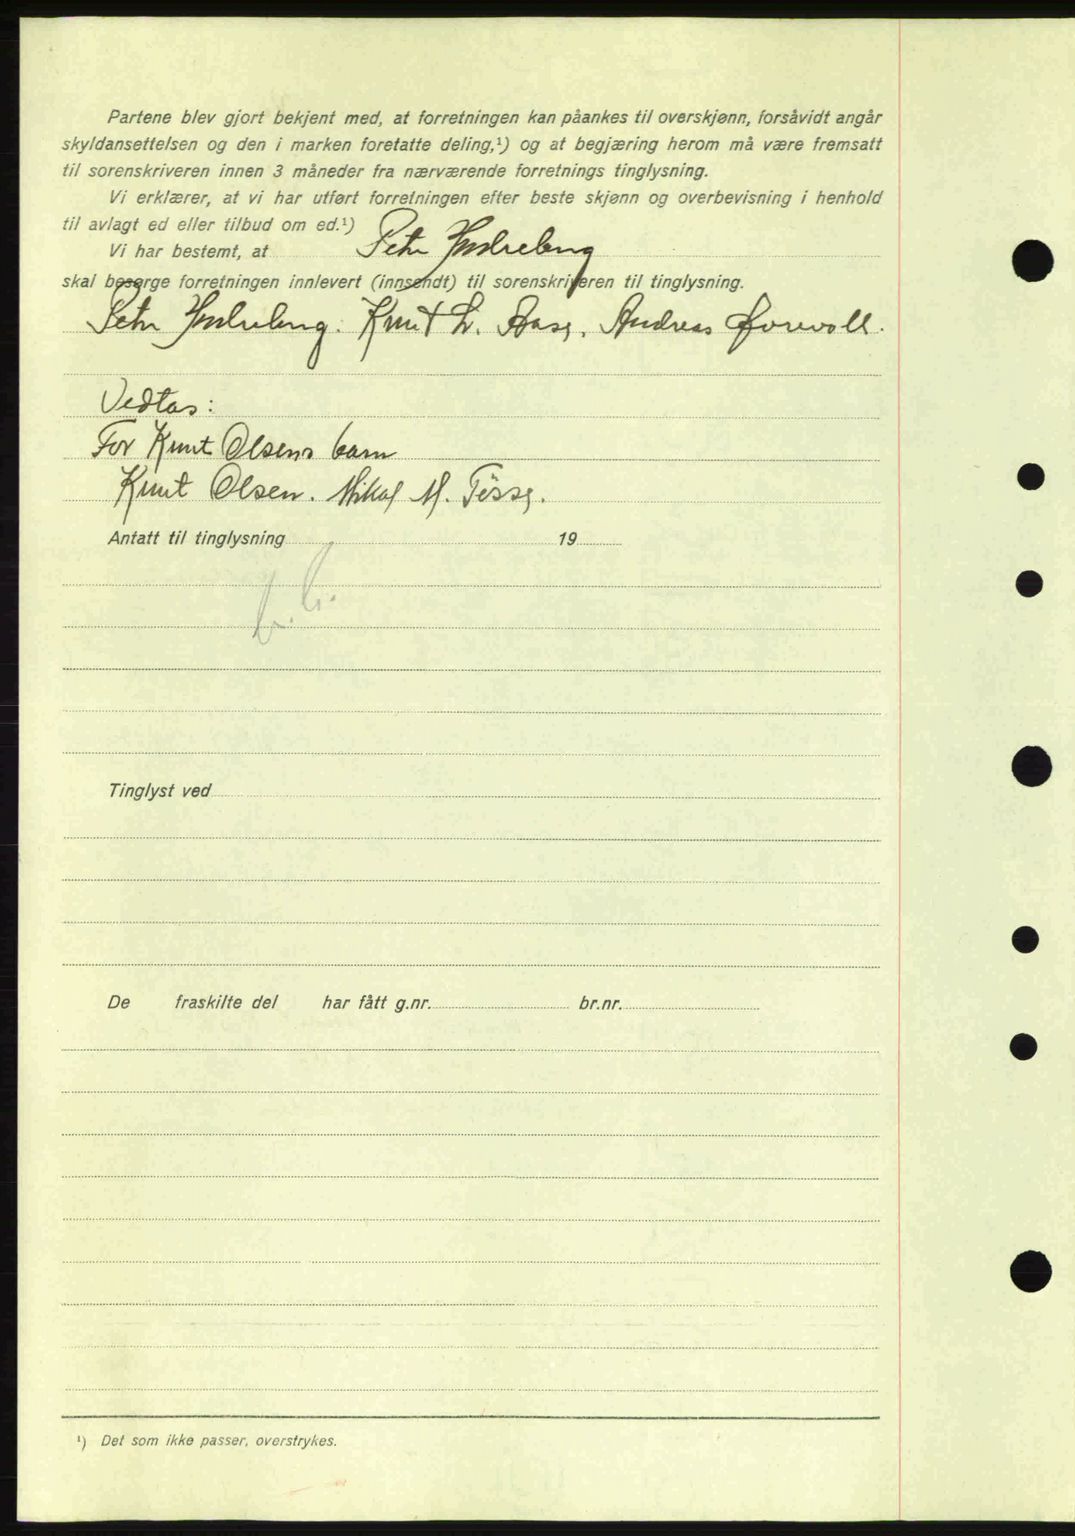 Partene blev gjort bekjent med, at forretningen kan påankes til overskjønn, forsåvidt angår
skyldansettelsen og den i marken foretatte deling,¹) og at begjæring herom må være fremsatt
til sorenskriveren innen 3 måneder fra nærværende forretnings tinglysning.
Vi erklærer, at vi har utført forretningen efter beste skjønn og overbevisning i henhold
til avlagt ed eller tilbud om ed.¹)
Vi har bestemt, at Petr Indreberg
skal besørge forretningen innlevert (innsendt) til sorenskriveren til tinglysning.
Petr Indreberg. Knut L. Aase, Andreas
Vedtas:
For Knut Olsens barn
Knut Olsen. Mikal M. Tøsse.
Antatt til tinglysning 19
Tinglyst ved
De fraskilte del har fått g.nr. br.nr.
¹) Det som ikke passer, overstrykes.